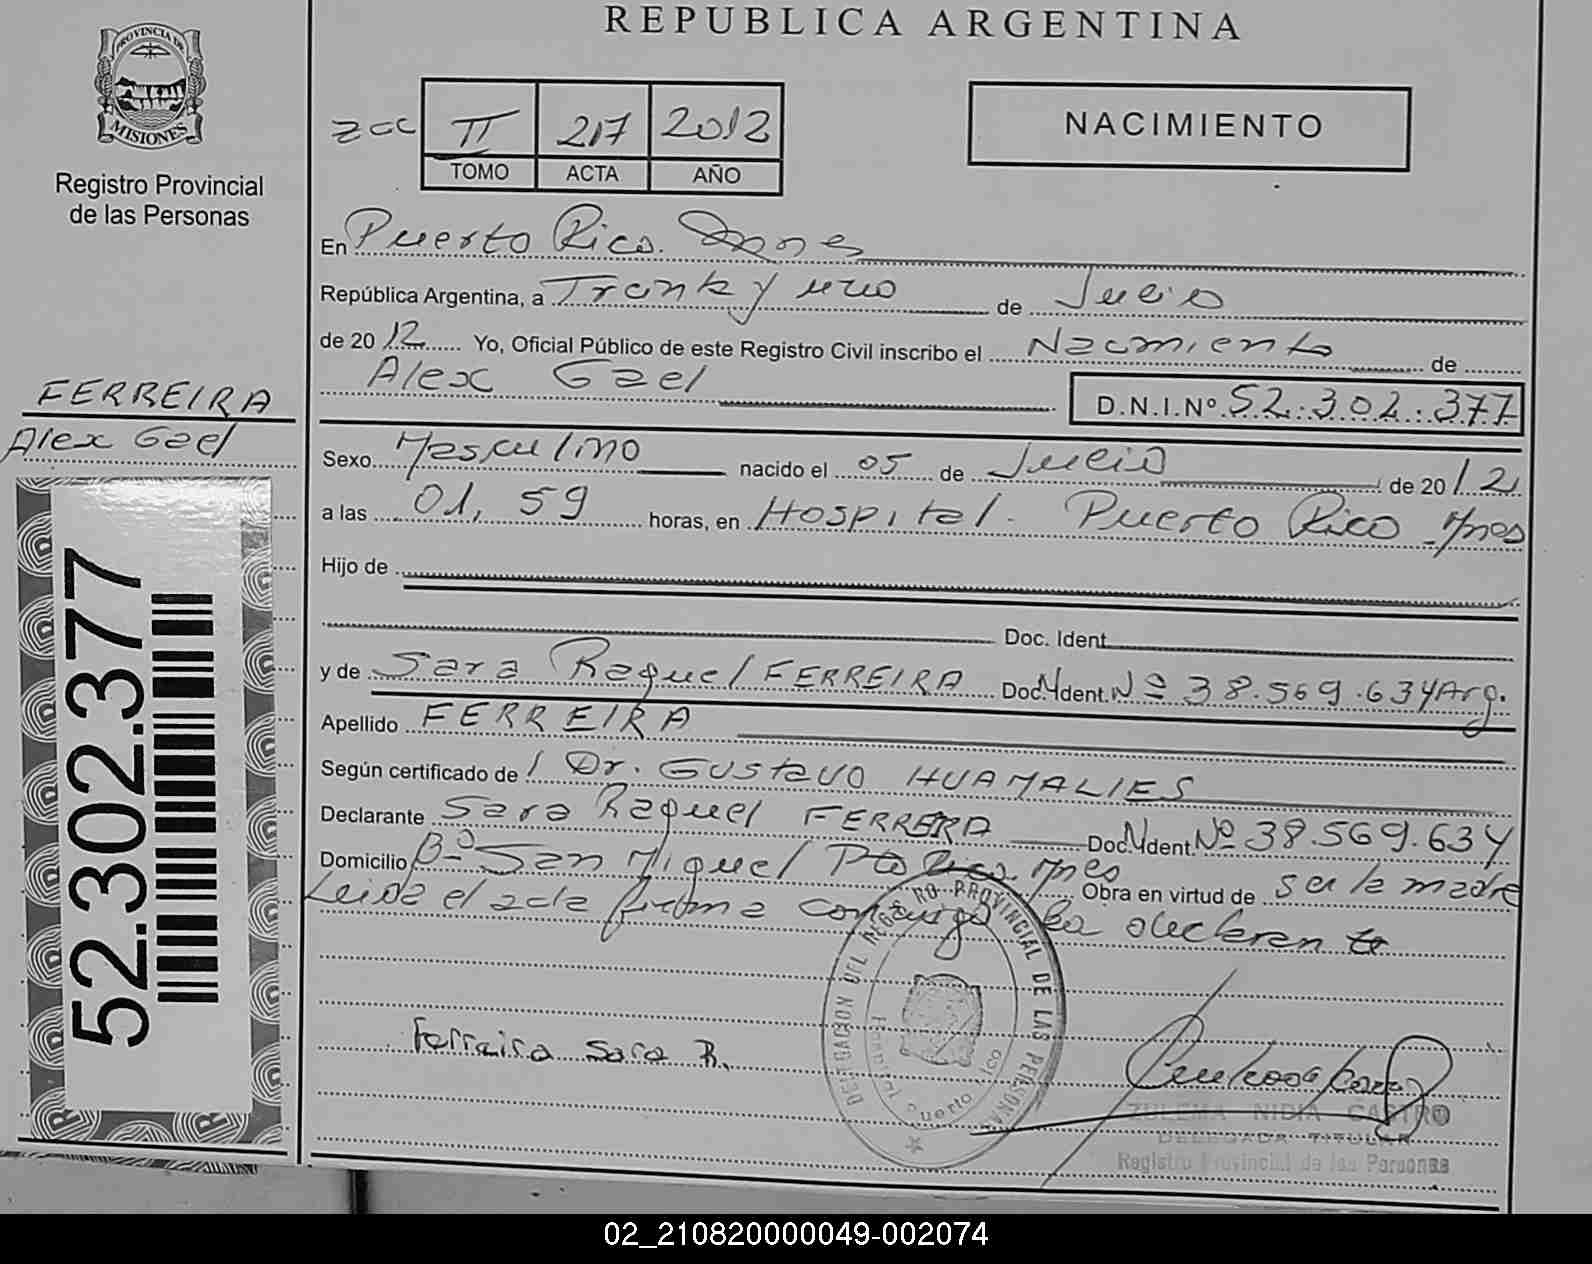 REPUBLICA ARGENTINA
PROVINCIA DE
MISIONES
Registro Provincial
de las Personas
zcc II 217 2012
TOMO ACTA AÑO
NACIMIENTO
En Puerto Rico. Mnes
República Argentina, a Treinta y uno de Julio
de 2012 Yo, Oficial Público de este Registro Civil inscribo el Nacimiento de
Alex Gael D.N.I.Nº 52.302.377
FERREIRA
Alex Gael
Sexo Masculino nacido el 05 de Julio de 2012
a las 01,59 horas, en Hospital. Puerto Rico Mnes
Hijo de
Doc. Ident.
y de Sara Raquel FERREIRA Doc. Ident. Nº 38.569.634 Arg.
Apellido FERREIRA
Según certificado de Dr. Gustavo HUAMALIES
Declarante Sara Raquel FERREIRA Doc. Ident. Nº 38.569.634
Domicilio Bº San Miguel Pto Rico. Mnes Obra en virtud de ser la madre
Leida el acta firma conmigo la declarante
52.302.377
DELEGACION DEL REGISTRO PROVINCIAL DE LAS PERSONAS
Hospital Puerto Rico
Ferreira Sara R.
ZULEMA NIDIA CASTRO
DELEGADA TITULAR
Registro Provincial de las Personas
02_210820000049-002074